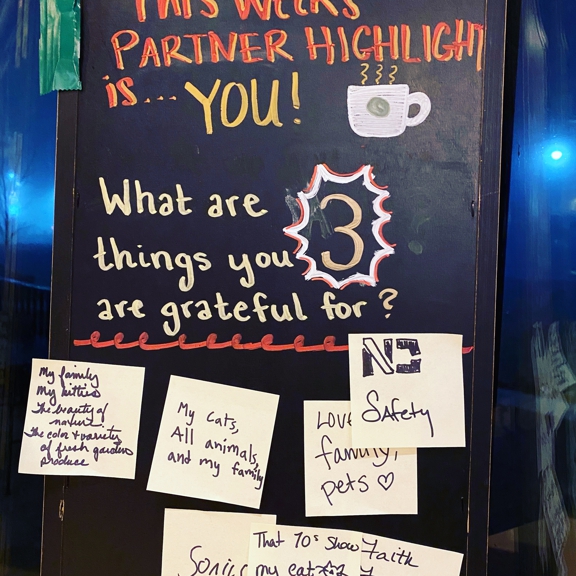 THIS WEEK'S
PARTNER HIGHLIGHT
is... YOU!
What are 3
things you
are grateful for?
My family
My kitties
The beauty of
nature
The color + variety
of fresh garden
produce
My cats,
All animals,
and my family
Love
family,
pets ♡
Safety
Sonic
That 70s Show
my cat
Faith